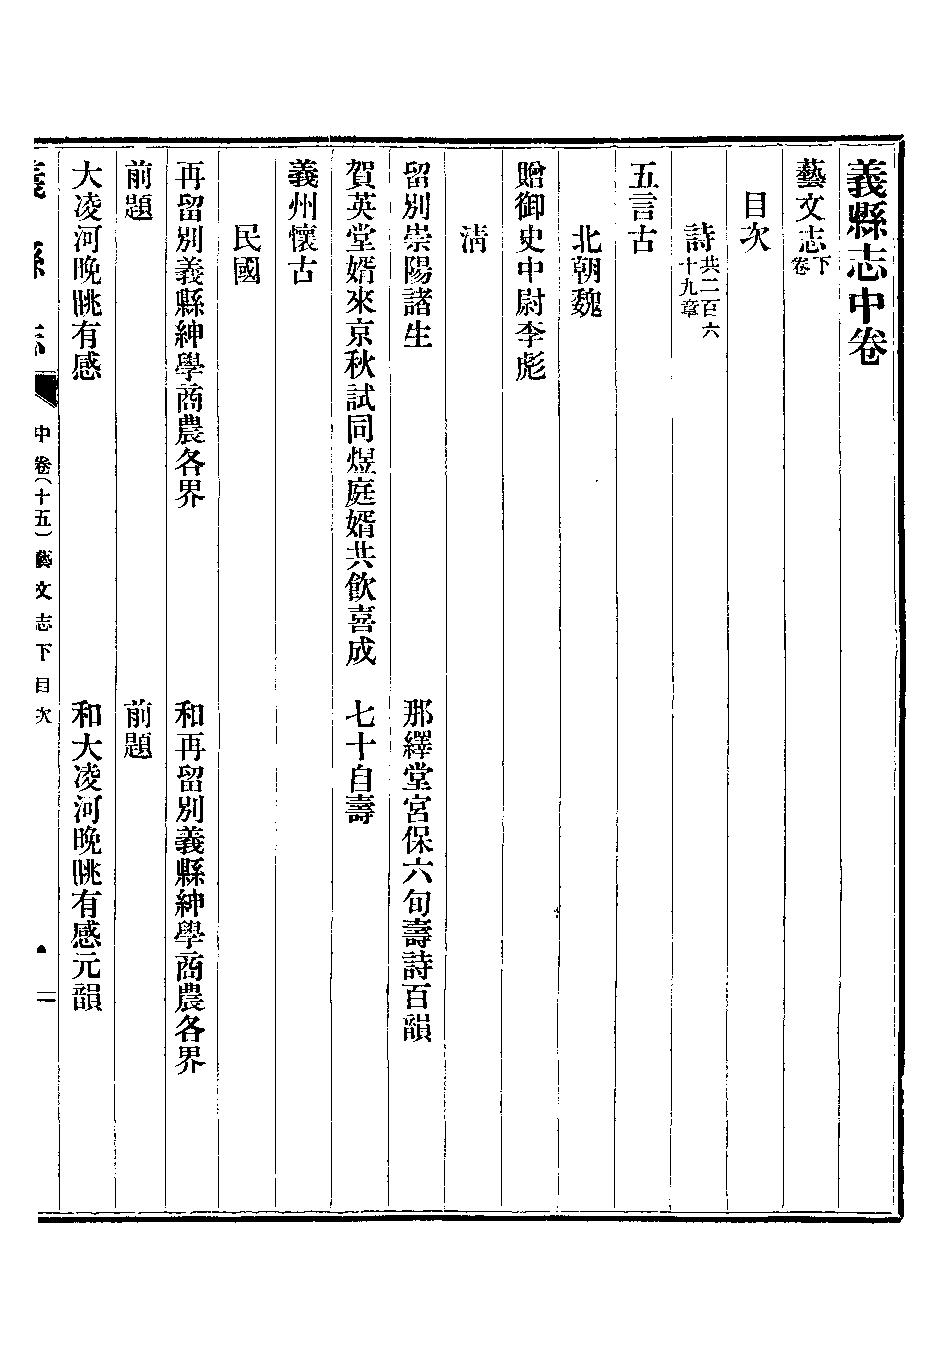 義縣志中卷
藝文志下卷
目次
詩共二百六十九章
五言古
北朝魏
贈御史中尉李彪
清
留別崇陽諸生　那繹堂宮保六旬壽詩百韻
賀英堂婿來京秋試同煜庭婿共飲喜成　七十自壽
義州懷古
民國
再留別義縣紳學商農各界　和再留別義縣紳學商農各界
前題　前題
大凌河晚眺有感　和大凌河晚眺有感元韻
義縣志　中卷(十五)藝文志下目次　一